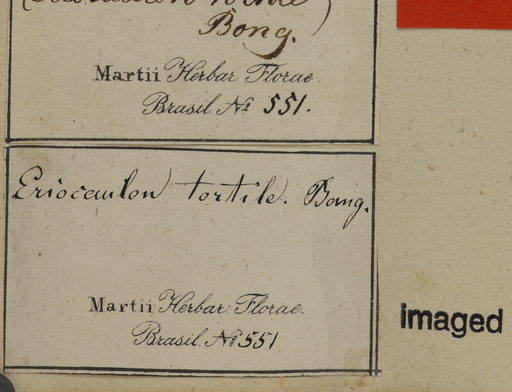 Bong.
Martii Herbar. Florae
Brasil. No 551.
Eriocaulon tortile. Bong.
Martii Herbar. Florae.
Brasil. No 551
imaged